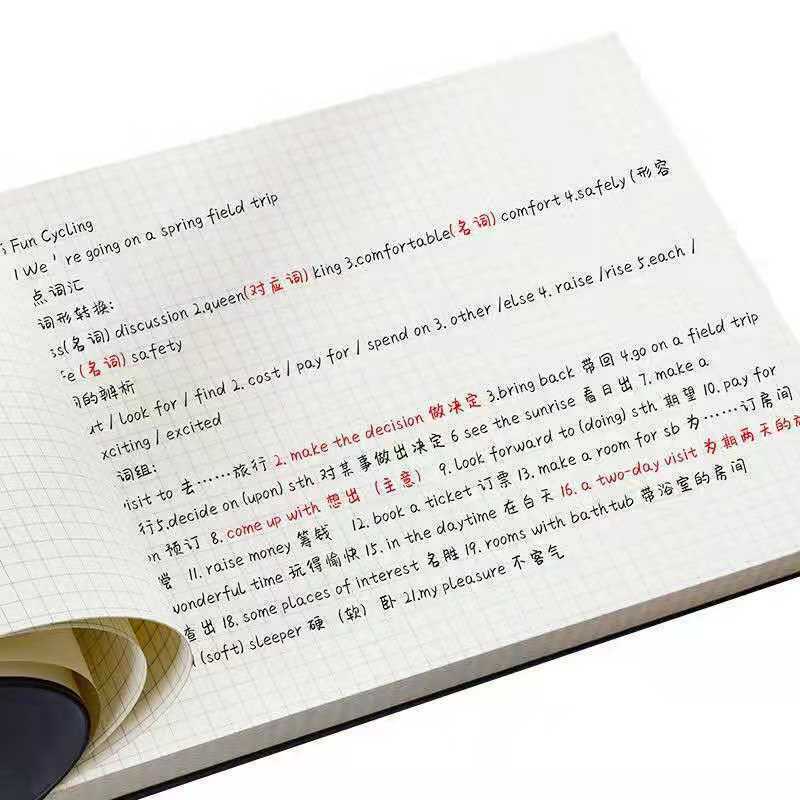 Fun Cycling
1 We're going on a spring field trip
点词汇
词形转换:
ss(名词) discussion 2.queen(对应词) king 3.comfortable(名词) comfort 4.safely (形容
fe (名词) safety
的辨析
ut / look for / find 2. cost / pay for / spend on 3. other /else 4. raise /rise 5.each /
xciting / excited
词组:
isit to 去……旅行 2. make the decision 做决定 3.bring back 带回 4.go on a field trip
行5.decide on (upon) sth 对某事做出决定 6 see the sunrise 看日出 7. make a
on 预订 8. come up with 想出 (主意) 9. Look forward to (doing) sth 期望 10. pay for
尝 11. raise money 筹钱 12. book a ticket 订票 13. make a room for sb 为……订房间
wonderful time 玩得愉快 15. in the daytime 在白天 16. a two-day visit 为期两天的
查出 18. some places of interest 名胜 19. rooms with bathtub 带浴室的房间
d (soft) sleeper 硬 (软) 卧 21.my pleasure 不客气